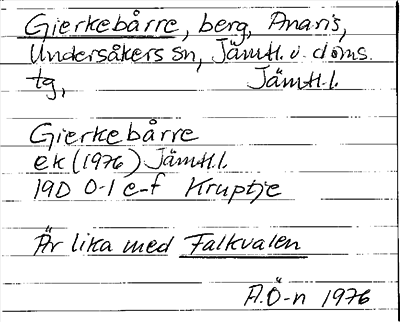 Gierkebårre, berg, Anaris,
Undersåkers sn, Jämtl. v. doms.
tg, Jämtl. l.
Gierkebårre
ek (1976) Jämtl. l.
19D 0-1 e-f Kruptje
Är lika med Falkvalen
A.Ö-n 1976